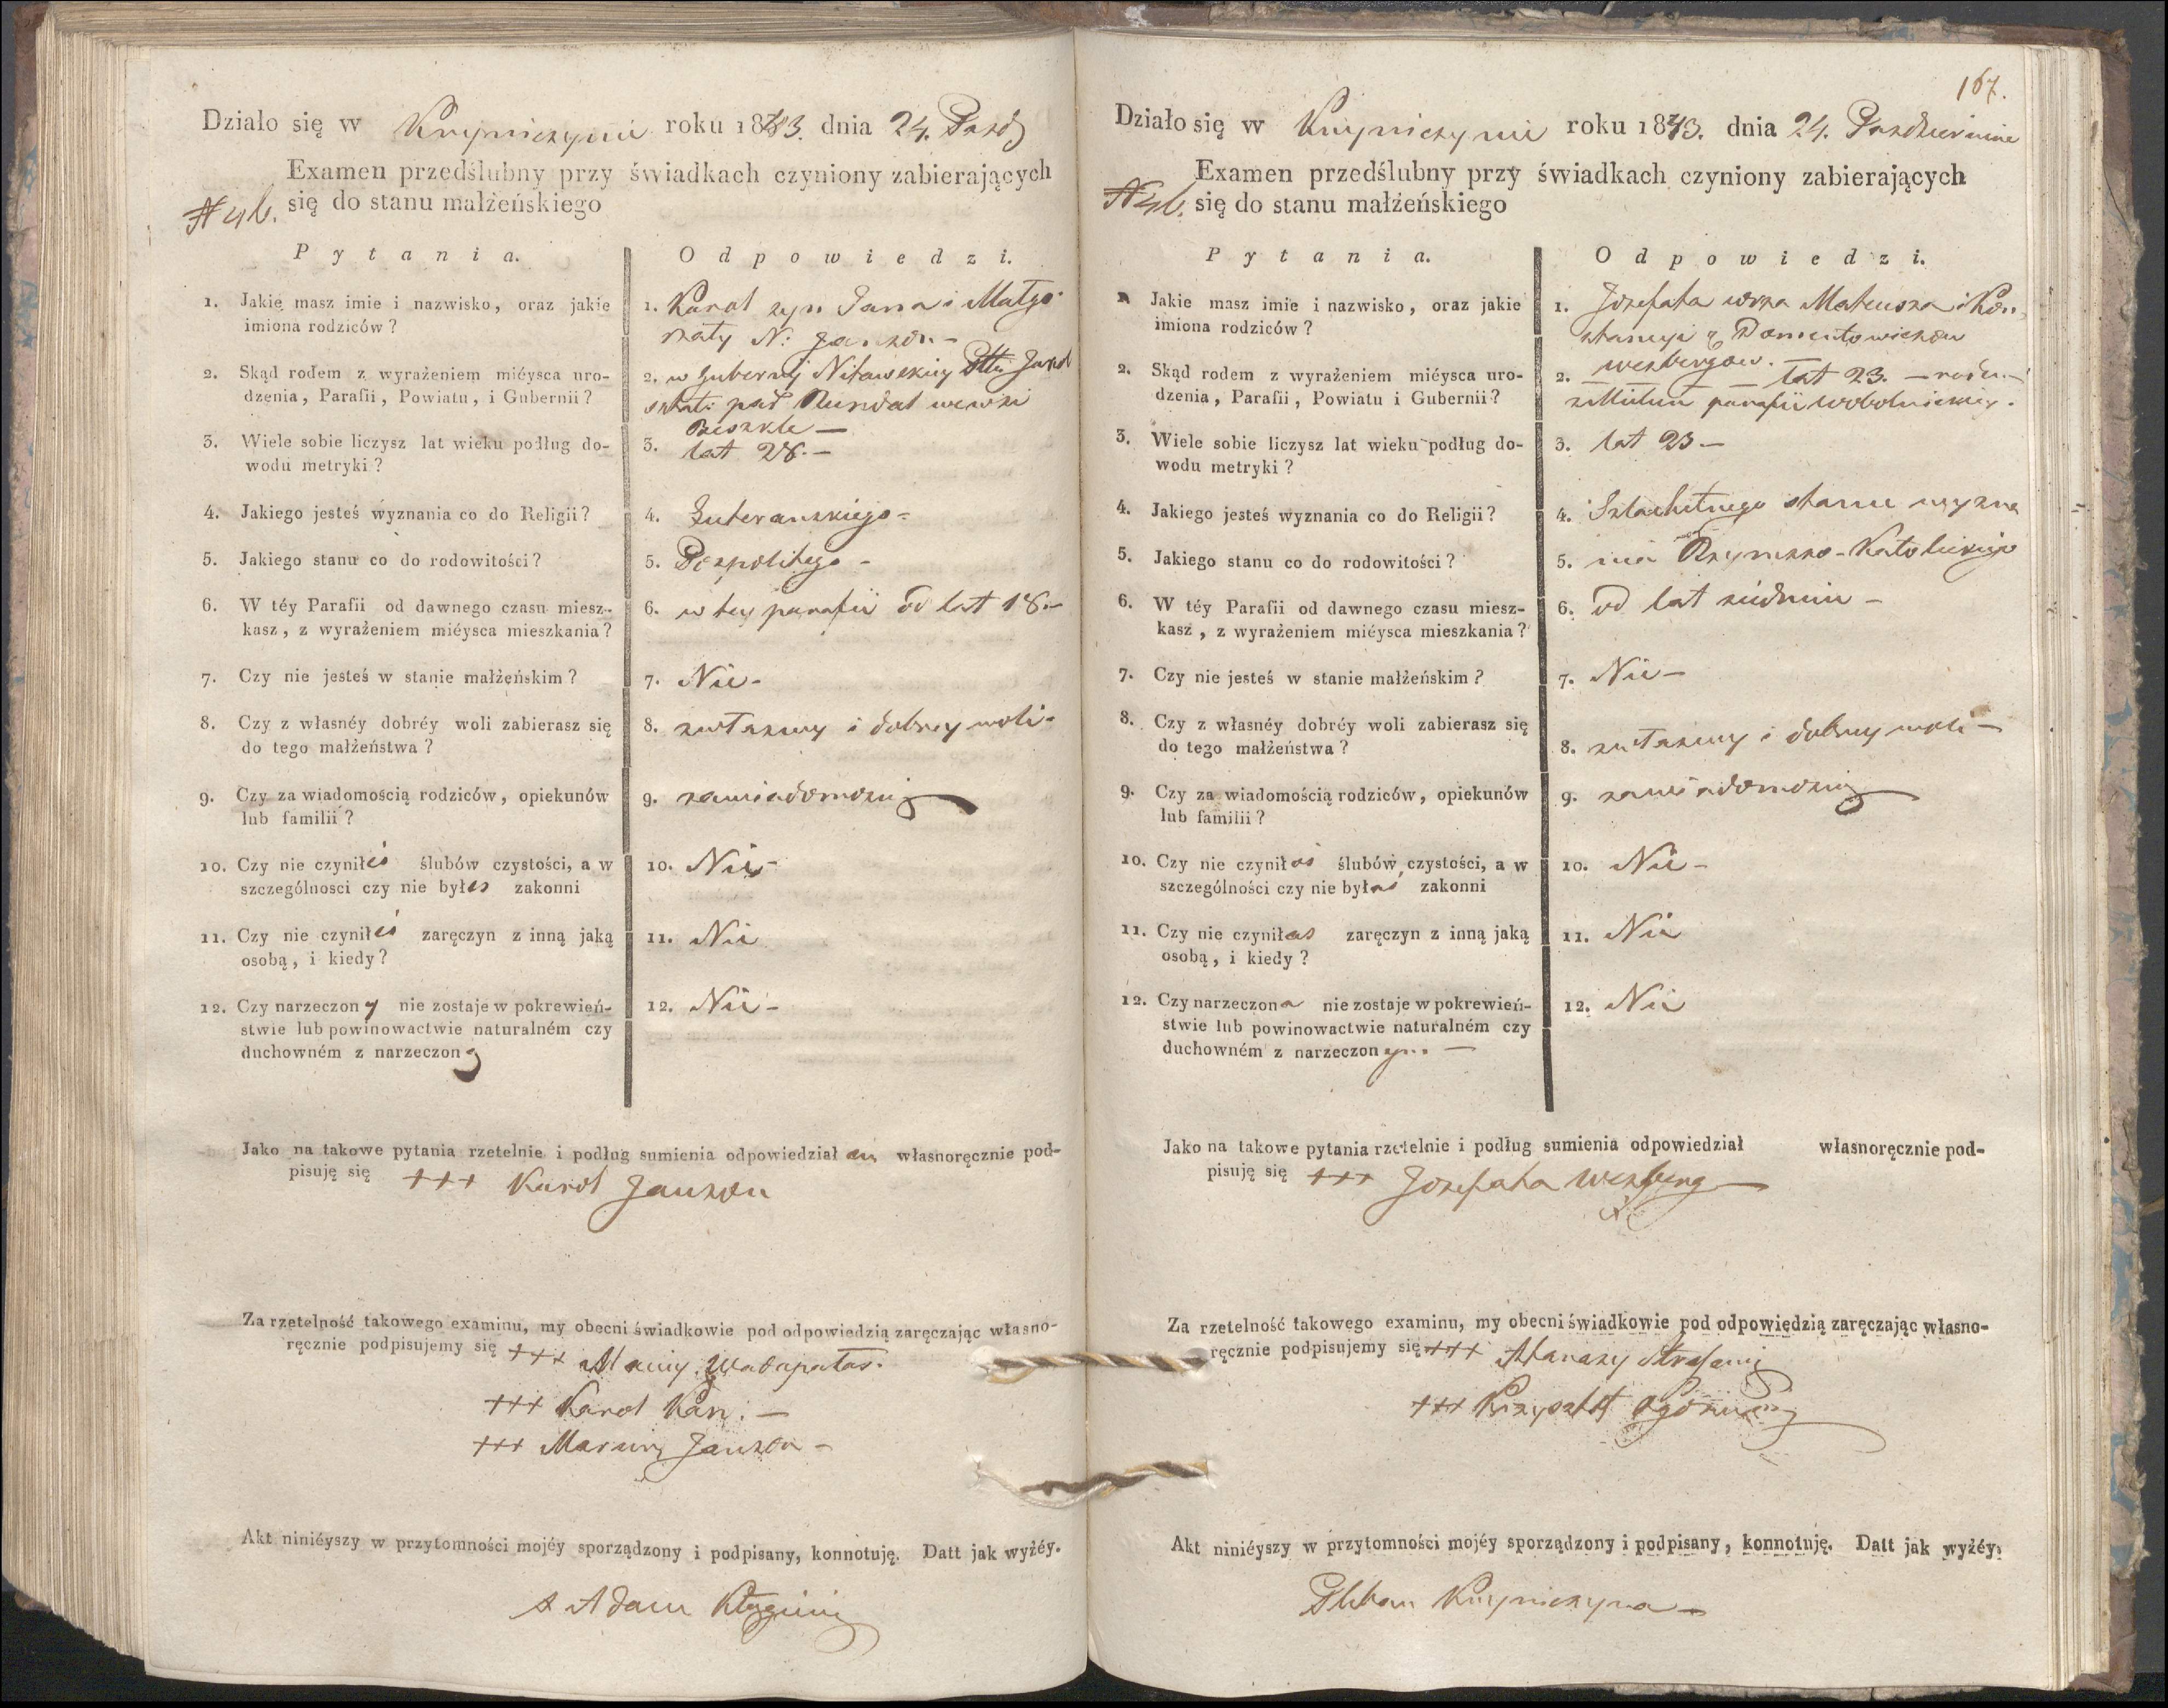 Działo się w Krynniczynie roku 1843. dnia 24. Pazdź
Examen przedślubny przy świadkach czyniony zabierających
się do stanu małżeńskiego
Pytania. Odpowiedzi.
1. Jakie masz imie i nazwisko, oraz jakie
imiona rodziców?
1. Karol syn Jana i Małgo
rzaty N: Janson –
2. Skąd rodem z wyrażeniem miéysca uro-
dzenia, Parafii, Powiatu, i Gubernii?
2. w Gubernij Mitawskiey
pod Rundal
3. Wiele sobie liczysz lat wieku podług do-
wodu metryki?
3. lat 28. –
4. Jakiego jesteś wyznania co do Religii?
4. Luteranskiego –
5. Jakiego stanu co do rodowitości?
5. Pospolitego –
6. W téy Parafii od dawnego czasu miesz-
kasz, z wyrażeniem miéysca mieszkania?
6. w tey parafii od lat 18. –
7. Czy nie jesteś w stanie małżeńskim?
7. Nie –
8. Czy z własnéy dobréy woli zabierasz się
do tego małżeństwa?
8. zwłasney i dobrey woli –
9. Czy za wiadomością rodziców, opiekunów
lub familii?
9. zawiadomością
10. Czy nie czyniłeś ślubów czystości, a w
szczególnosci czy nie byłes zakonni
10. Nie –
11. Czy nie czyniłeś zaręczyn z inną jaką
osobą, i kiedy?
11. Nie
12. Czy narzeczony nie zostaje w pokrewień-
stwie lub powinowactwie naturalném czy
duchowném z narzeczoną
12. Nie –
Jako na takowe pytania rzetelnie i podług sumienia odpowiedział em własnoręcznie pod-
pisuję się +++ Karol Janson
Za rzetelność takowego examinu, my obecni świadkowie pod odpowiedzią zaręczając własno-
ręcznie podpisujemy się +++
+++ Karol Kan. –
+++ Janson –
Akt niniéyszy w przytomności mojéy sporządzony i podpisany, konnotuję. Datt jak wyżéy.
X Adam
167.
Działo się w Krynniczynie roku 1843. dnia 24. Pazdziernika
Examen przedślubny przy świadkach czyniony zabierających
się do stanu małżeńskiego
Pytania. Odpowiedzi.
Jakie masz imie i nazwisko, oraz jakie
imiona rodziców?
1. Jozefata corka Mateusza i Kon
stancyi z Domontowiczow
2. Skąd rodem z wyrażeniem miéysca uro-
dzenia, Parafii, Powiatu i Gubernii?
2. Wezbergow. – lat 23. – rodu –
parafii Wobolnickiey.
3. Wiele sobie liczysz lat wieku podług do-
wodu metryki?
3. lat 23 –
4. Jakiego jesteś wyznania co do Religii?
4. Szlachetnego stanu wyzna
5. Jakiego stanu co do rodowitości?
5. nia Rzymsko-Katolickiego
6. W téy Parafii od dawnego czasu miesz-
kasz, z wyrażeniem miéysca mieszkania?
6. od lat siedmiu –
7. Czy nie jesteś w stanie małżeńskim?
7. Nie –
8. Czy z własnéy dobréy woli zabierasz się
do tego małżeństwa?
8. zwłasney i dobrey woli –
9. Czy za wiadomością rodziców, opiekunów
lub familii?
9. zawiadomością
10. Czy nie czyniłaś ślubów czystości, a w
szczególności czy nie byłaś zakonni
10. Nie –
11. Czy nie czyniłas zaręczyn z inną jaką
osobą, i kiedy?
11. Nie
12. Czy narzeczona nie zostaje w pokrewień-
stwie lub powinowactwie naturalném czy
duchowném z narzeczonym –
12. Nie
Jako na takowe pytania rzetelnie i podług sumienia odpowiedział własnoręcznie pod-
pisuję się +++ Jozefata Wezberg –
Za rzetelność takowego examinu, my obecni świadkowie pod odpowiedzią zaręczając własno-
ręcznie podpisujemy się +++ Atanazy
+++ Krzysztof
Akt niniéyszy w przytomności mojéy sporządzony i podpisany, konnotuję. Datt jak wyżéy.
Pleban